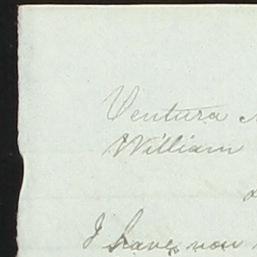 Ventura
William
I have you